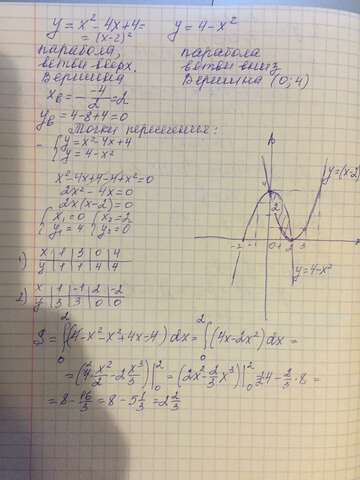 y = x² - 4x + 4 =
= (x-2)²
парабола,
ветви вверх.
Вершина
xв = - -4/2 = 2
yв = 4 - 8 + 4 = 0
y = 4 - x²
парабола
ветви вниз
Вершина (0; 4)
Точки пересечения:
{ y = x² - 4x + 4
y = 4 - x²
x² - 4x + 4 - 4 + x² = 0
2x² - 4x = 0
2x(x-2) = 0
{ x₁ = 0 { x₂ = 2
y₁ = 4 y₂ = 0
1) x | 1 | 3 | 0 | 4
y | 1 | 1 | 4 | 4
2) x | 1 | -1 | 2 | -2
y | 3 | 3 | 0 | 0
y = (x-2)
4
-2 -1 0 1 2 3
y = 4 - x²
S = ∫₀² (4 - x² - x² + 4x - 4) dx = ∫₀² (4x - 2x²) dx =
= (4 x²/2 - 2 x³/3) |₀² = (2x² - 2/3 x³) |₀² = 2·4 - 2/3 · 8 =
= 8 - 16/3 = 8 - 5 1/3 = 2 2/3